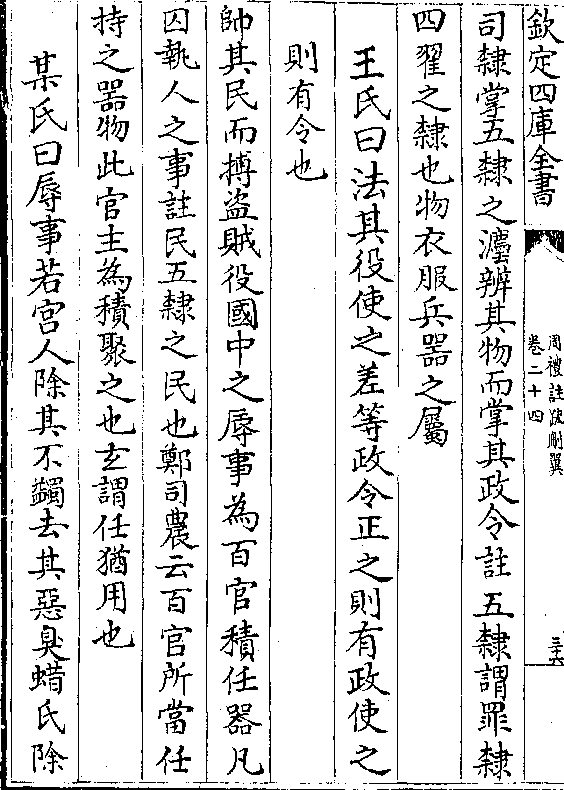 欽定四庫全書
周禮註疏刪翼
卷二十四
三十六
司隸掌五隸之灋辨其物而掌其政令註五隸謂罪隸
四翟之隸也物衣服兵器之屬
王氏曰法其役使之差等政令正之則有政使之
則有令也
帥其民而搏盜賊役國中之辱事為百官積任器凡
囚執人之事註民五隸之民也鄭司農云百官所當任
持之器物此官主為積聚之也玄謂任猶用也
某氏曰辱事若宮人除其不蠲去其惡臭蜡氏除